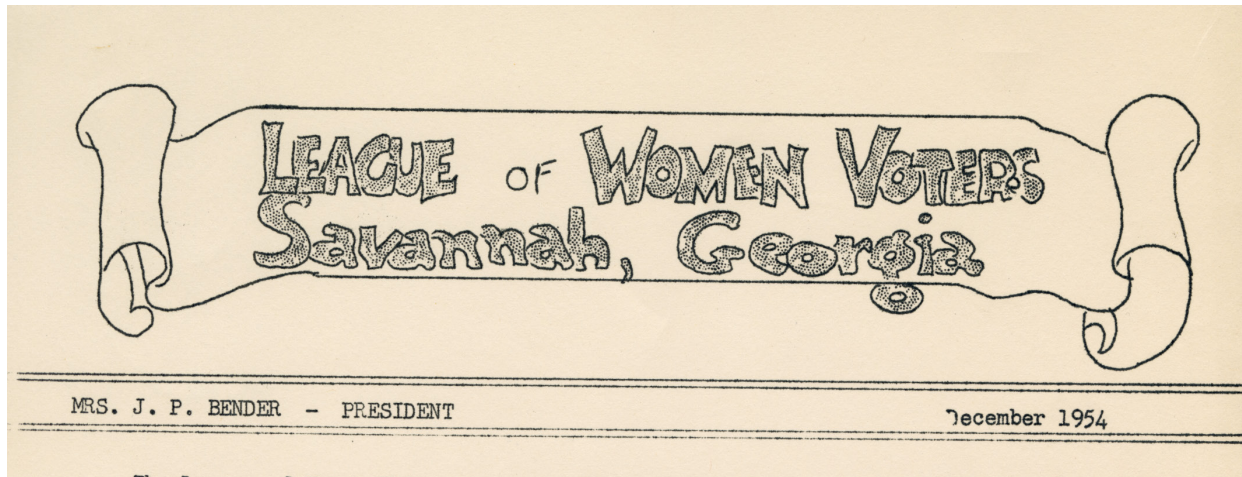 LEAGUE OF WOMEN VOTERS
Savannah, Georgia
MRS. J. P. BENDER - PRESIDENT
December 1954